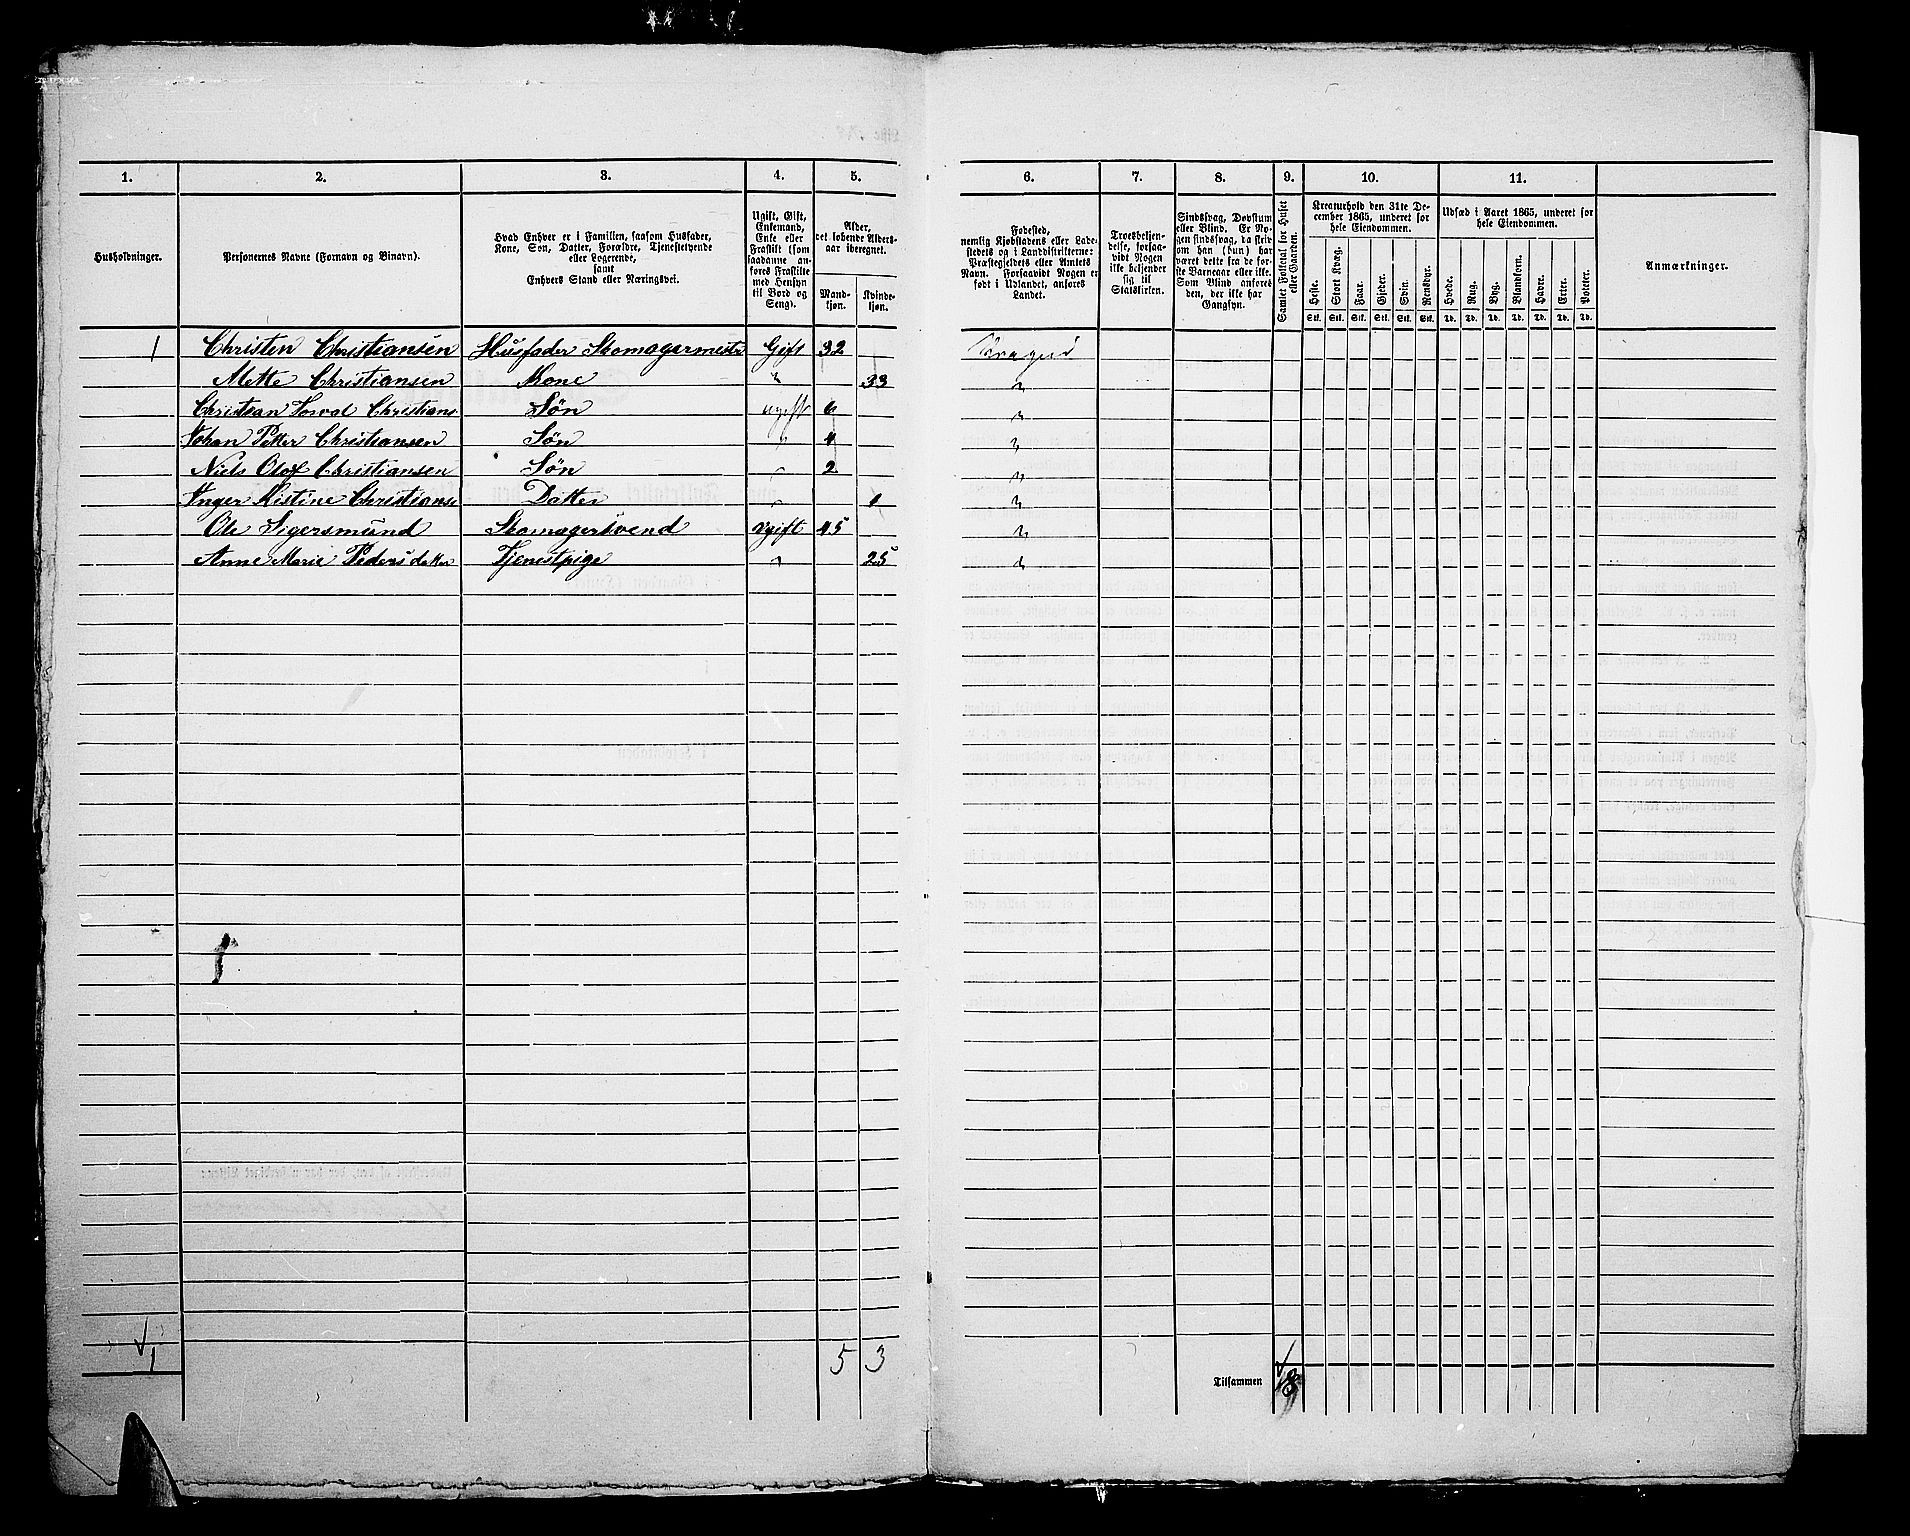 1. 2. 3. 4. 5. 6. 7. 8. 9. 10. 11.
Husholdninger.
Personernes Navne (Fornavn og Binavn).
Hvad Enhver er i Familien, saasom Husfader,
Kone, Søn, Datter, Forældre, Tjenestetyende
eller Logerende,
samt
Enhvers Stand eller Næringsvei.
Ugift, Gift,
Enkemand,
Enke eller
Fraskilt (som
saadanne an-
føres Fraskilte
med Hensyn
til Bord og
Seng).
Alder,
det løbende Alders-
aar iberegnet.
Mand-
kjøn.
Kvinde-
kjøn.
Fødested,
nemlig Kjøbstadens eller Lade-
stedets og i Landdistrikterne:
Præstegjeldets eller Amtets
Navn. Forsaavidt Nogen er
født i Udlandet, anføres
Landet.
Troesbekjen-
delse, forsaa-
vidt Nogen
ikke bekjender
sig til
Statskirken.
Sindssvag, Døvstum
eller Blind. Er No-
gen sindssvag, da skriv
om han (hun) har
været dette fra de før-
ste Barneaar eller ikke.
Som Blind anføres
den, der ikke har
Gangsyn.
Samlet Folketal for Huset
eller Gaarden.
Kreaturhold den 31te De-
cember 1865, underet for
hele Eiendommen.
Heste. Stort Kvæg. Faar. Gjeder. Svin. Rensdyr.
Stk. Stk. Stk. Stk. Stk. Stk.
Udsæd i Aaret 1865, underet for
hele Eiendommen.
Hvede. Rug. Byg. Blandkorn. Havre. Erter. Poteter.
Td. Td. Td. Td. Td. Td. Td.
Anmærkninger.
1 Christen Christiansen Husfader Skomagermester Gift 32 Kragerø
Mette Christiansen Kone " 33 "
Christian Christians Søn ugift 6 "
Johan Petter Christiansen Søn " 4 "
Niels Olaf Christiansen Søn " 2 "
Inger Kistine Christianse Datter " 1 "
Ole Sigersmund Skomagersvend Ugift 45 "
Anne Marie Pedersdatter Tjenestpige " 25 "
1 5 3
Tilsammen 8